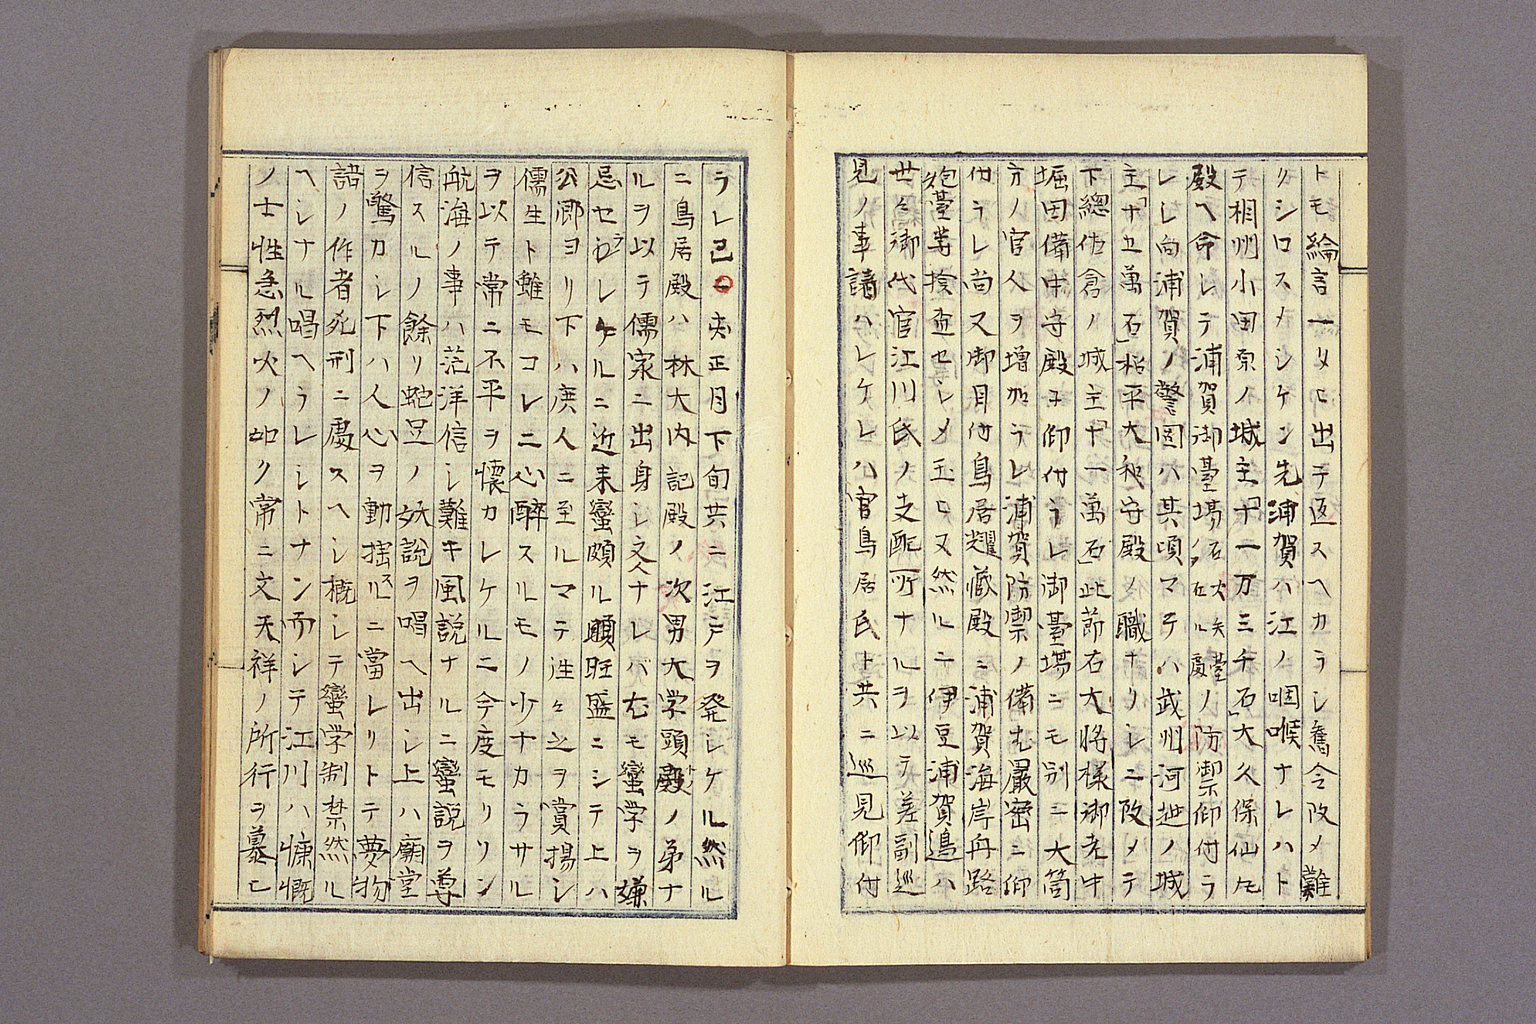 トモ綸言一タヒ出テ返スヘカラシ奮令改メ難
クシロスメシケン先浦賀ハ江ノ咽喉ナレハト
テ相州小田原ノ城主「十一万三千石」大久保仙丸
殿ヘ命シテ浦賀御臺場石火矢臺ノ防禦仰付ラ
レシ向浦賀ノ警固ハ其頃マテハ武州河越ノ城
主「十五萬石」松平大和守殿ノ職ナリシニ改メテ
下總佐倉ノ城主「十一萬石」此節右大將様御老中
堀田備中守殿エ仰付ラレ御臺場ニモ別ニ大筒
方ノ官人ヲ増加ラレ浦賀防禦ノ備尤嚴密ニ仰
付ラレ尚又御目付鳥居燿藏殿ニ浦賀海岸舟路
炮臺等撿査セシメ玉ヒ又然ルニ伊豆浦賀邉ハ
世々御代官江川氏ノ支配所ナルヲ以テ差副巡
見ノ事請ハレケレハ官鳥居氏ト共ニ巡見仰付
ラレ己亥正月下旬共ニ江戸ヲ発シケル然ル
ニ鳥居殿ハ林大内記殿ノ次男大学頭殿ノ弟ナ
ルヲ以テ儒家ニ出身シ文人ナレバ尤モ蠻学ヲ嫌
忌セラレケルニ近来蠻頗ル頗旺盛ニシテ上ハ
公卿ヨリ下ハ庻人ニ至ルマテ往々之ヲ賞揚シ
儒生ト雖モコレニ心醉スルモノ少ナカラサル
ヲ以テ常ニ不平ヲ懐カレケルニ今度モリソン
航海ノ事ハ茫洋信シ難キ風説ナルニ蠻説ヲ尊
信スルノ餘リ蛇足ノ妖説ヲ唱ヘ出シ上ハ廟堂
ヲ驚カシ下ハ人心ヲ動揺スルニ當レリトテ夢物
語ノ作者死刑ニ處スヘシ概シテ蠻学制禁然ル
ヘシナル唱ヘラレシトナン而シテ江川ハ慷慨
ノ士性急烈火ノ如ク常ニ文天祥ノ所行ヲ慕ヒ